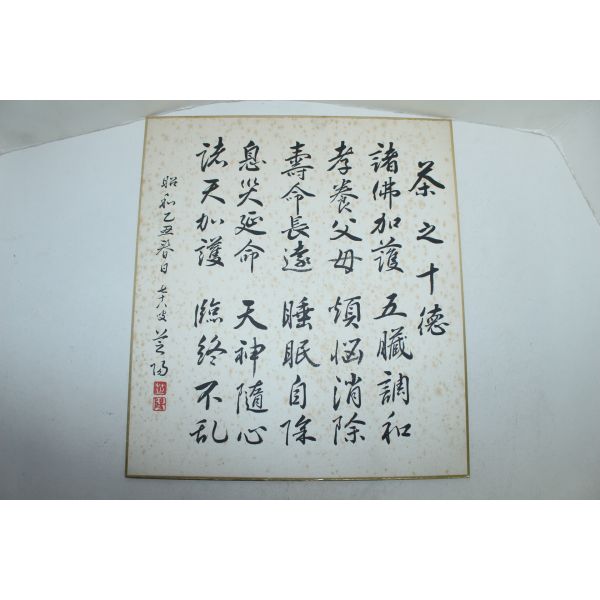 茶之十徳
諸佛加護 五臓調和
孝養父母 煩悩消除
壽命長遠 睡眠自除
息災延命 天神隨心
諸天加護 臨終不乱
昭和乙丑春日 七十八叟 芝陽